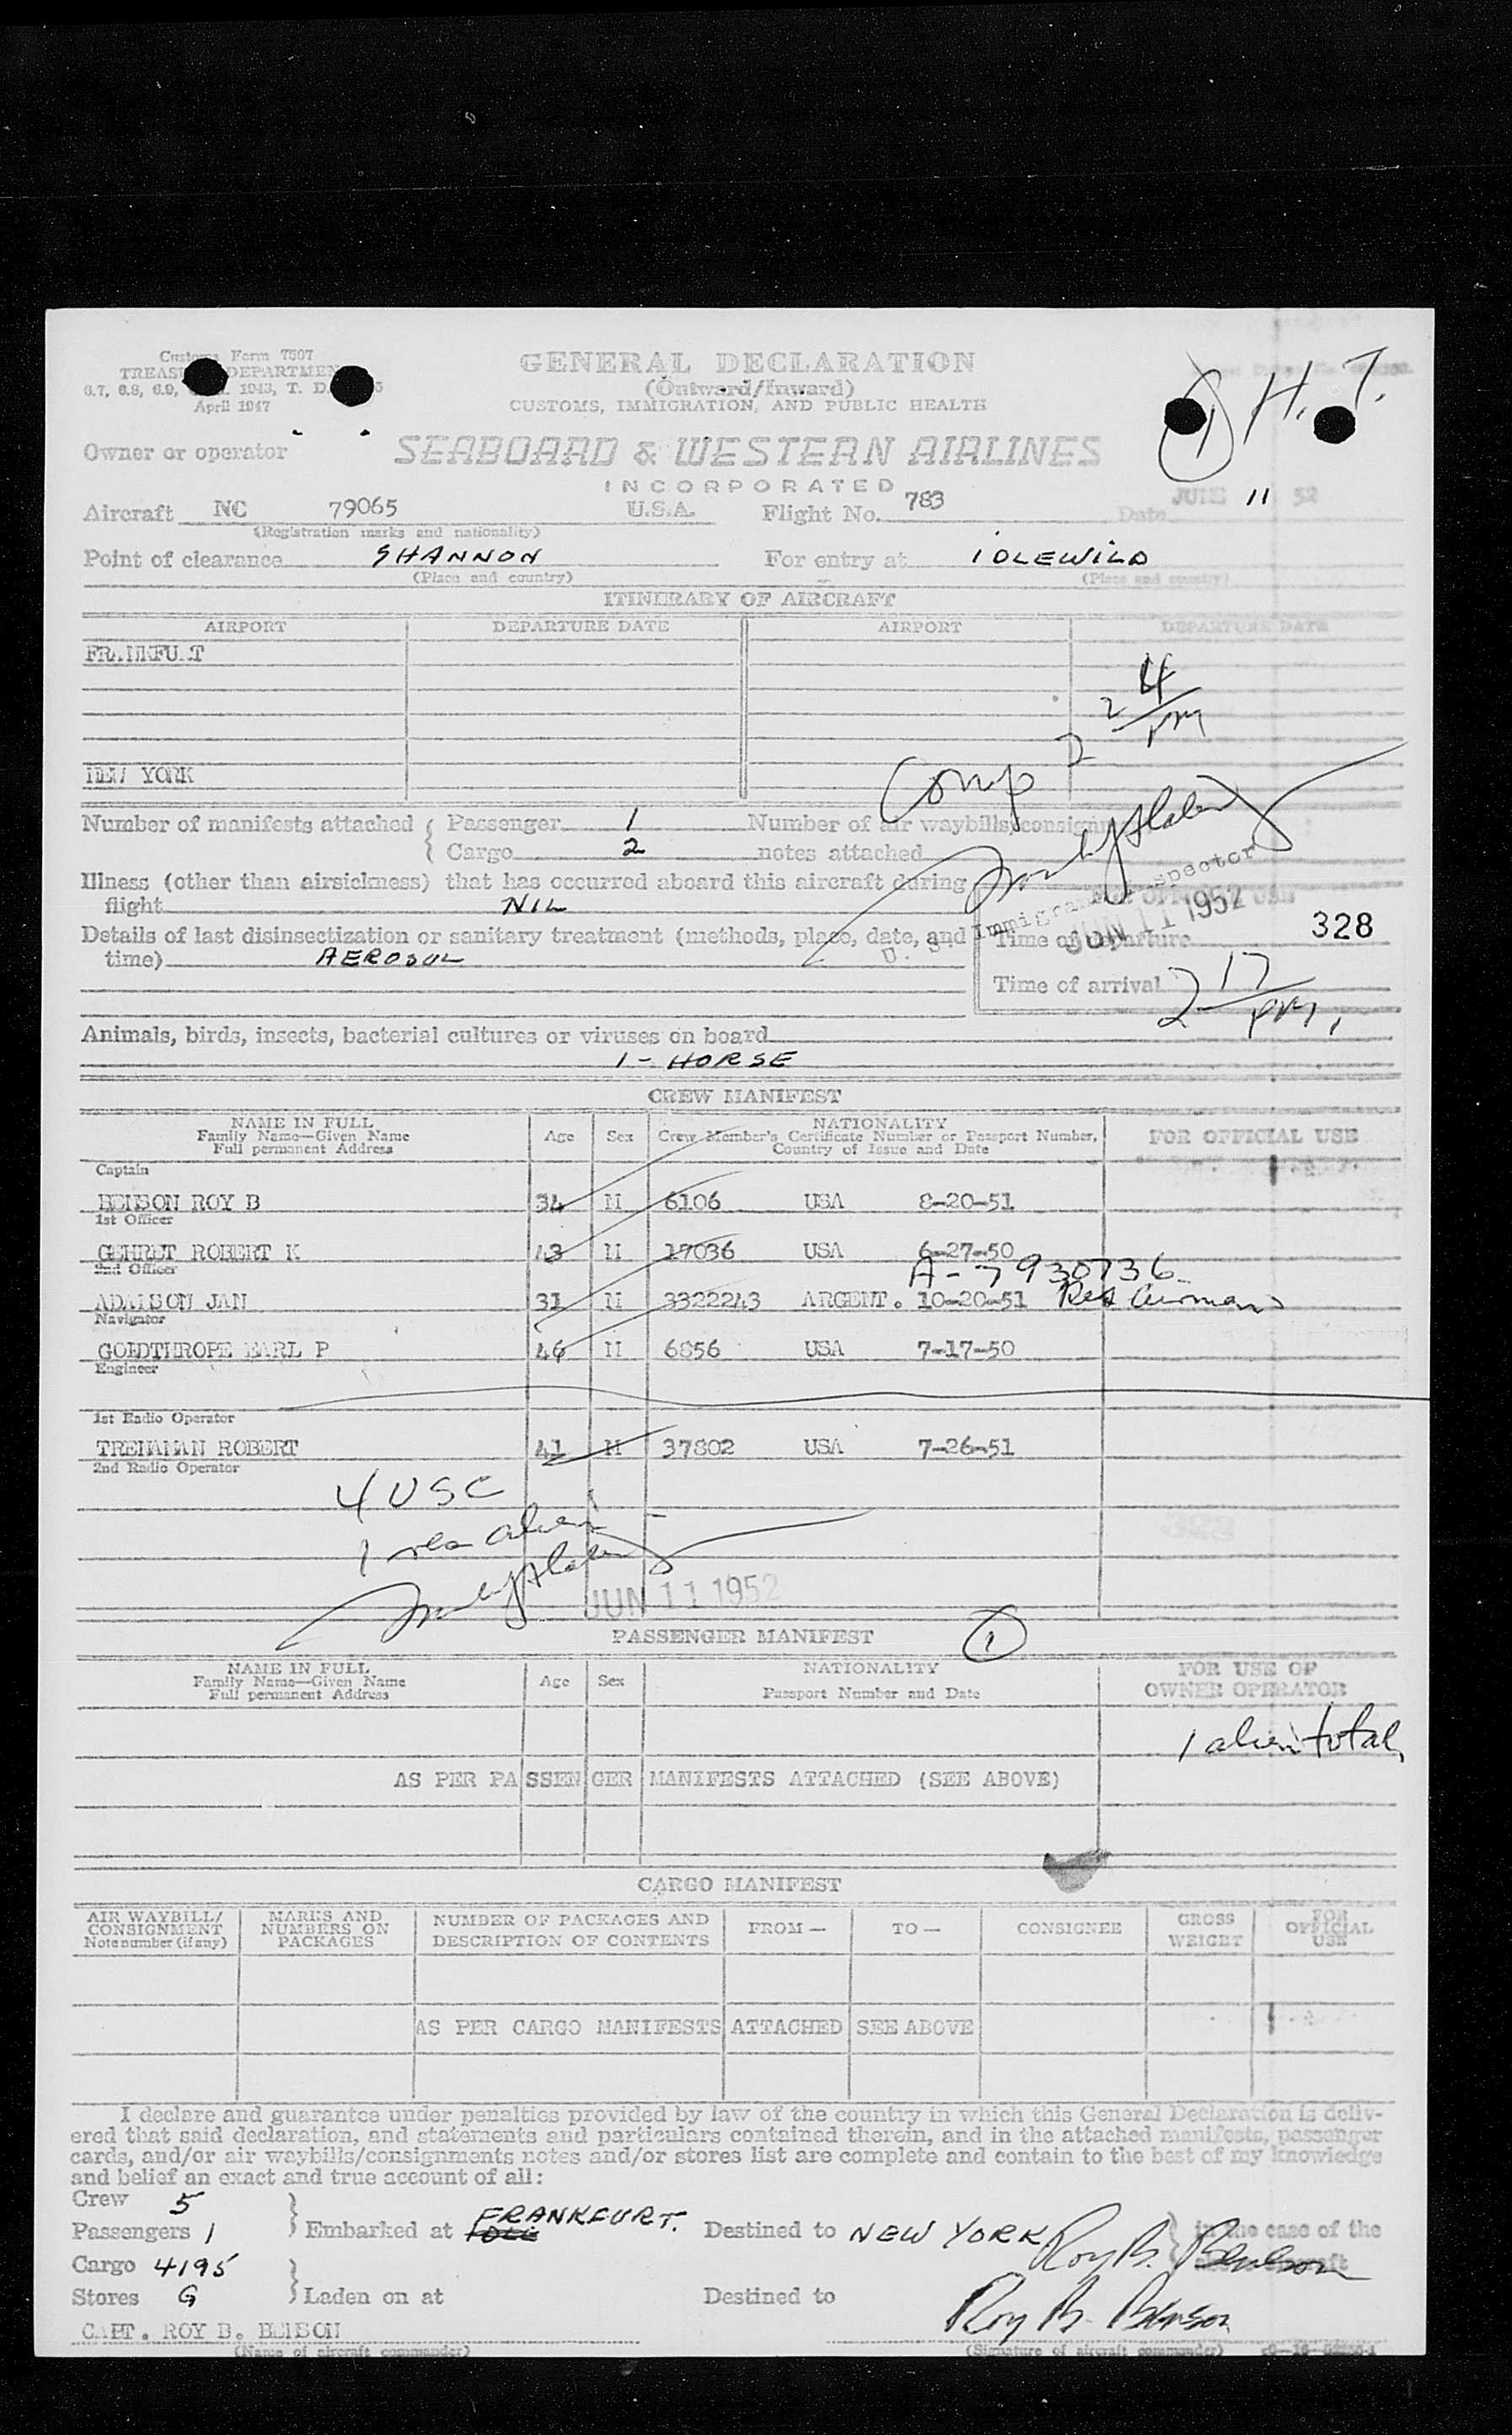 Customs Form 7507
TREASURY DEPARTMENT
6.7, 6.8, 6.9, 1943, T. D.
April 1947
GENERAL DECLARATION
(Outward/Inward)
CUSTOMS, IMMIGRATION, AND PUBLIC HEALTH
1 H. T.
Owner or operator SEABOARD & WESTERN AIRLINES
INCORPORATED
Aircraft NC 79065 U.S.A. Flight No. 783 Date JUNE 11 52
(Registration marks and nationality)
Point of clearance SHANNON For entry at IDLEWILD
(Place and country) (Place and country)
ITINERARY OF AIRCRAFT
AIRPORT DEPARTURE DATE AIRPORT DEPARTURE DATE
FRANKFURT
2 4 PM
NEW YORK
Comp
Number of manifests attached { Passenger 1 Number of air waybills/consignment
Cargo 2 notes attached
Illness (other than airsickness) that has occurred aboard this aircraft during
flight NIL
U. S. Immigrant Inspector
JUN 11 1952
FOR OFFICIAL USE
Details of last disinsectization or sanitary treatment (methods, place, date, and
time) AEROSOL
Time of departure 328
Time of arrival 2 17 PM.
Animals, birds, insects, bacterial cultures or viruses on board
1 - HORSE
CREW MANIFEST
NAME IN FULL
Family Name—Given Name
Full permanent Address
Age Sex
NATIONALITY
Crew Member's Certificate Number or Passport Number,
Country of Issue and Date
FOR OFFICIAL USE
Captain
BENSON ROY B 34 M 6106 USA 8-20-51
1st Officer
GEHRET ROBERT K 43 M 17036 USA 6-27-50
2nd Officer A-7930736
ADAMSON JAN 31 M 3322243 ARGENT. 10-20-51 Res Airman
Navigator
GOLDTHROPE EARL P 46 M 6856 USA 7-17-50
Engineer
1st Radio Operator
TREHAMAN ROBERT 41 M 37802 USA 7-26-51
2nd Radio Operator
4 USC
1 res alien
JUN 11 1952
PASSENGER MANIFEST 1
NAME IN FULL
Family Name—Given Name
Full permanent Address
Age Sex
NATIONALITY
Passport Number and Date
FOR USE OF
OWNER OPERATOR
1 alien total
AS PER PASSENGER MANIFESTS ATTACHED (SEE ABOVE)
CARGO MANIFEST
AIR WAYBILL/
CONSIGNMENT
Note number (if any)
MARKS AND
NUMBERS ON
PACKAGES
NUMBER OF PACKAGES AND
DESCRIPTION OF CONTENTS
FROM — TO — CONSIGNEE
GROSS
WEIGHT
FOR
OFFICIAL
USE
AS PER CARGO MANIFESTS ATTACHED SEE ABOVE
I declare and guarantee under penalties provided by law of the country in which this General Declaration is deliv-
ered that said declaration, and statements and particulars contained therein, and in the attached manifests, passenger
cards, and/or air waybills/consignments notes and/or stores list are complete and contain to the best of my knowledge
and belief an exact and true account of all:
Crew 5
Passengers 1 } Embarked at FRANKFURT. Destined to NEW YORK } in the case of the
Roy B. Benson
Cargo 4195
Stores G } Laden on at Destined to
Roy B. Benson
CAPT. ROY B. BENSON
(Name of aircraft commander) (Signature of aircraft commander)